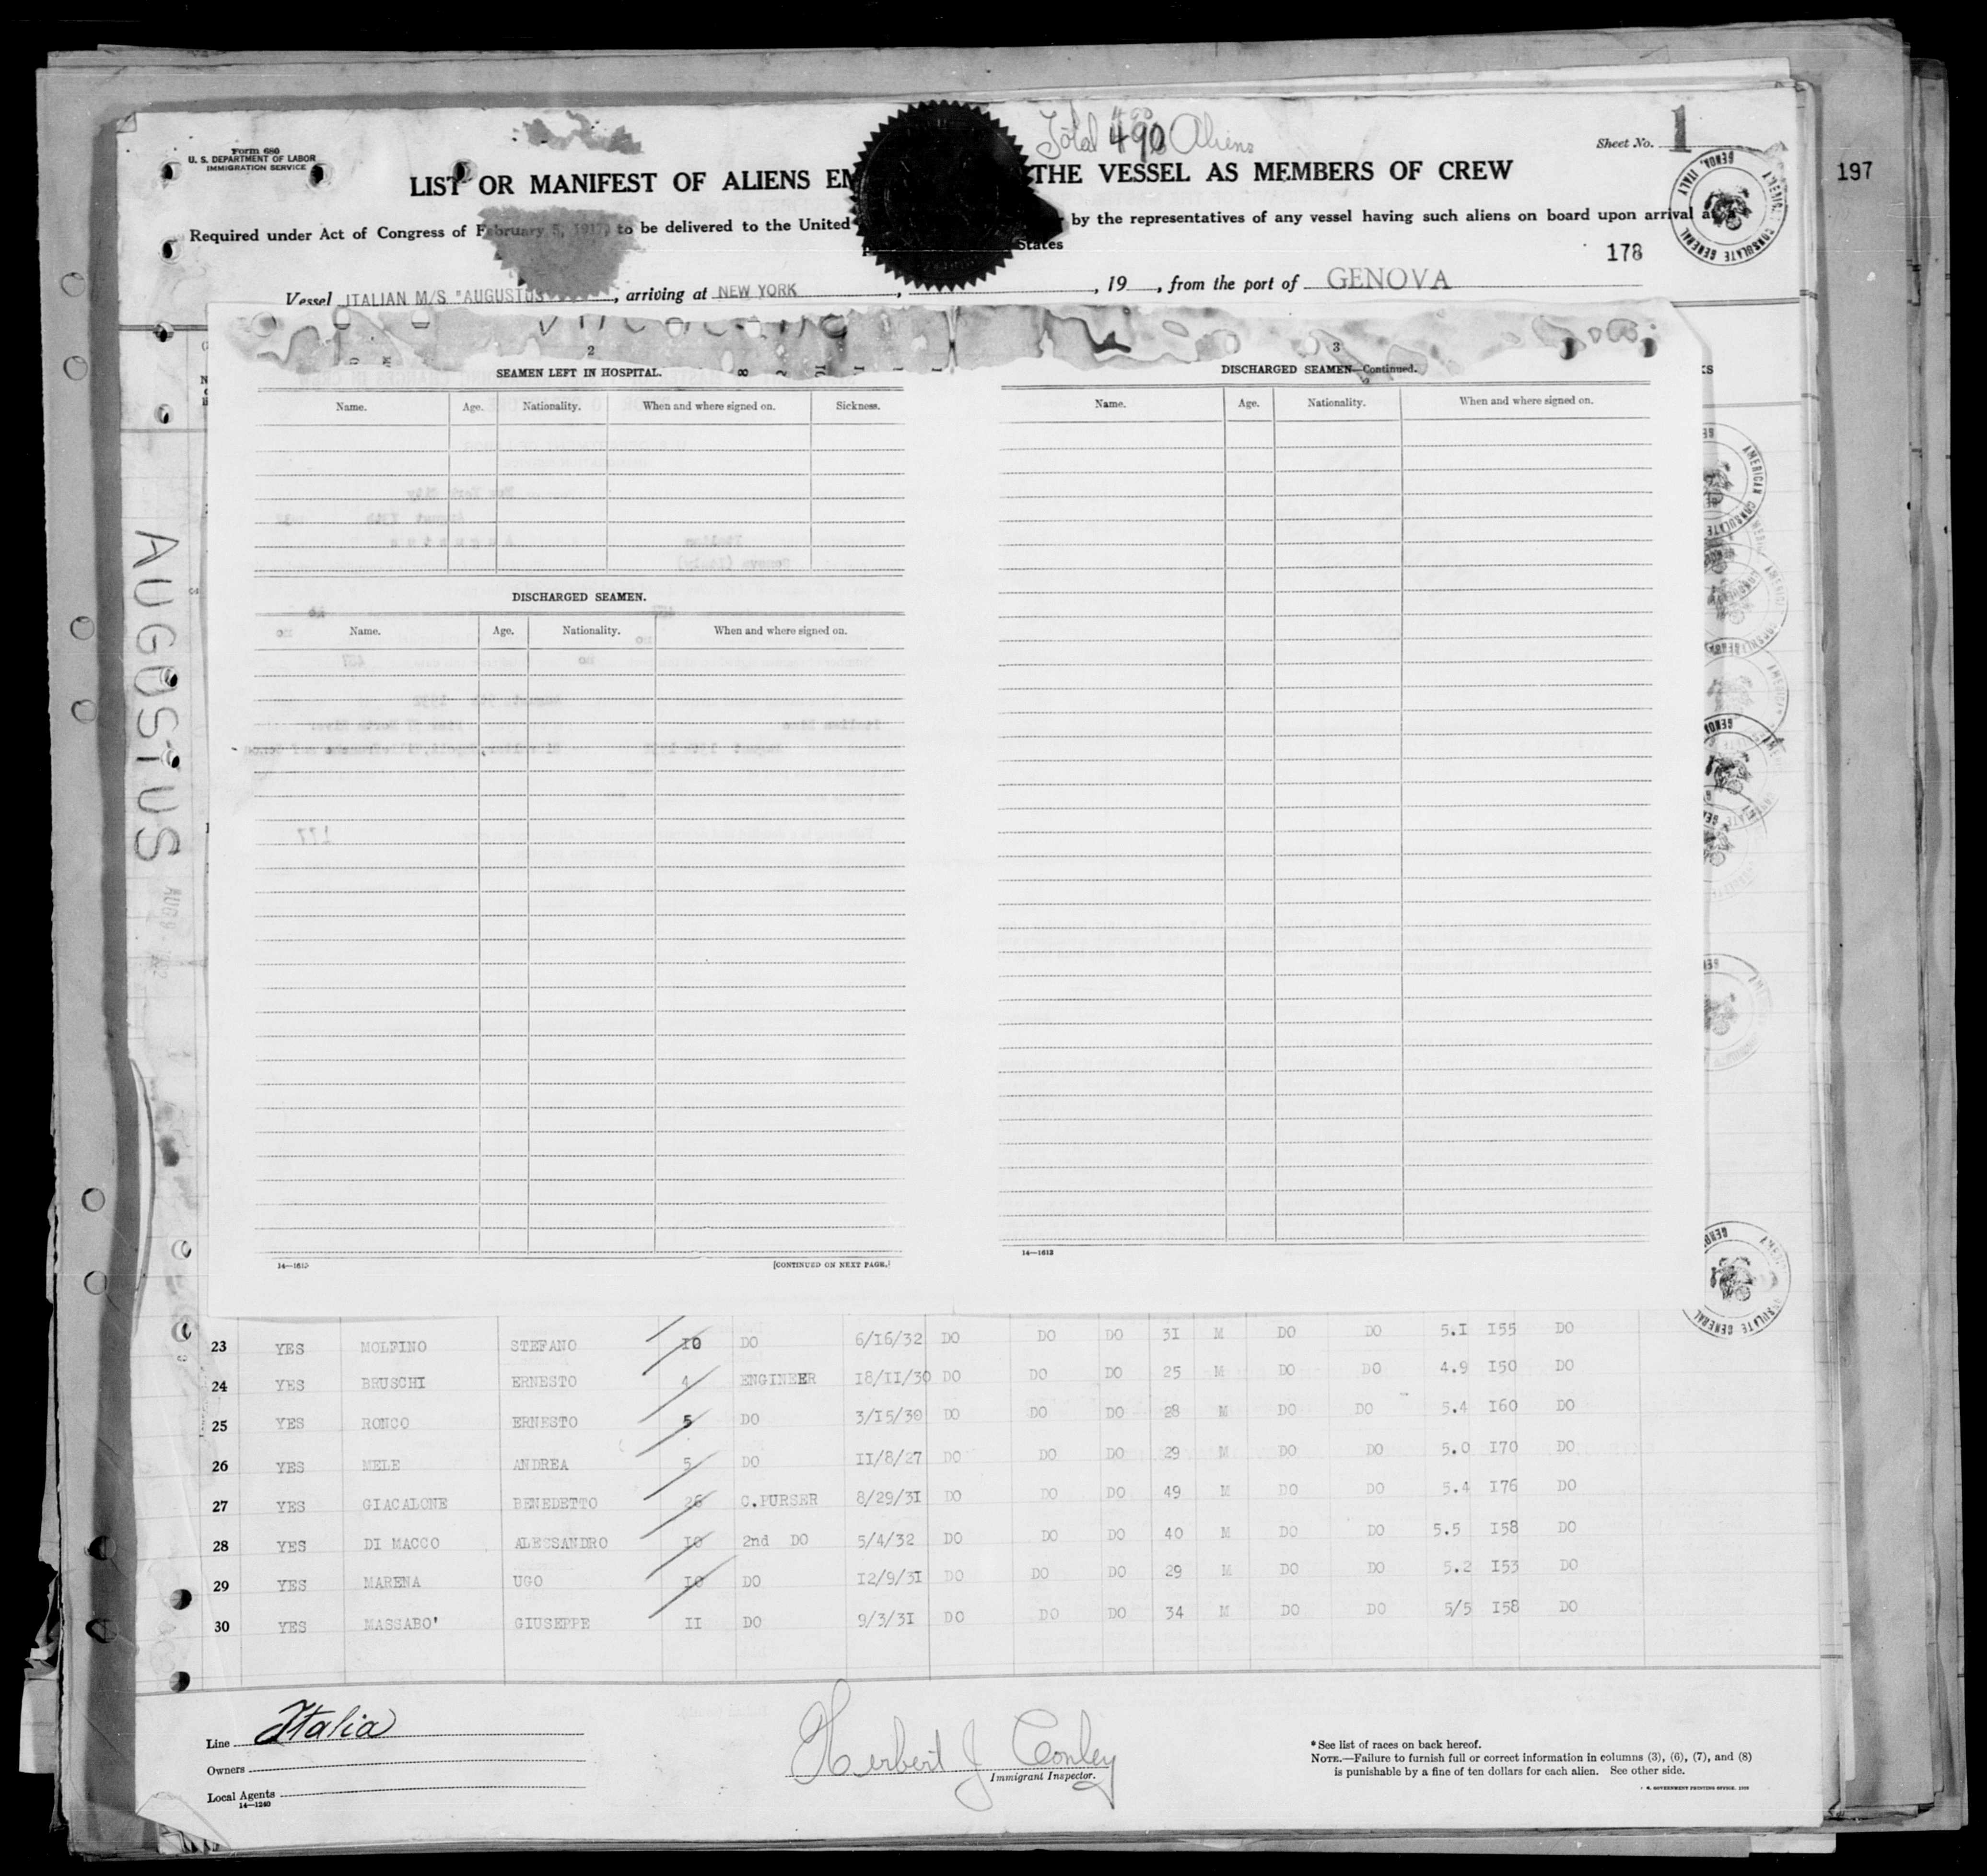 Form 680
U. S. DEPARTMENT OF LABOR
IMMIGRATION SERVICE
Total 490 Aliens
Sheet No. 1
197
LIST OR MANIFEST OF ALIENS EM THE VESSEL AS MEMBERS OF CREW
Required under Act of Congress of February 5, 1917, to be delivered to the United by the representatives of any vessel having such aliens on board upon arrival at
States
178
Vessel ITALIAN M/S "AUGUSTUS", arriving at NEW YORK, , 19 , from the port of GENOVA
AMERICAN CONSULATE GENERAL
GENOA, ITALY
AUGUSTUS
2
SEAMEN LEFT IN HOSPITAL.
Name. Age. Nationality. When and where signed on. Sickness.
DISCHARGED SEAMEN.
Name. Age. Nationality. When and where signed on.
177
14—1613
[CONTINUED ON NEXT PAGE.]
3
DISCHARGED SEAMEN—Continued.
Name. Age. Nationality. When and where signed on.
14—1613
23 YES MOLFINO STEFANO 10 DO 6/16/32 DO DO DO 31 M DO DO 5.1 155 DO
24 YES BRUSCHI ERNESTO 4 ENGINEER 18/11/30 DO DO DO 25 M DO DO 4.9 150 DO
25 YES RONCO ERNESTO 5 DO 3/15/30 DO DO DO 28 M DO DO 5.4 160 DO
26 YES MELE ANDREA 5 DO 11/8/27 DO DO DO 29 M DO DO 5.0 170 DO
27 YES GIACALONE BENEDETTO 26 C.PURSER 8/29/31 DO DO DO 49 M DO DO 5.4 176 DO
28 YES DI MACCO ALESSANDRO 10 2nd DO 5/4/32 DO DO DO 40 M DO DO 5.5 158 DO
29 YES MARENA UGO 10 DO 12/9/31 DO DO DO 29 M DO DO 5.2 153 DO
30 YES MASSABO' GIUSEPPE 11 DO 9/3/31 DO DO DO 34 M DO DO 5/5 158 DO
Line Italia
Owners
Local Agents
14—1240
Herbert J Conley
Immigrant Inspector.
*See list of races on back hereof.
NOTE.—Failure to furnish full or correct information in columns (3), (6), (7), and (8)
is punishable by a fine of ten dollars for each alien. See other side.